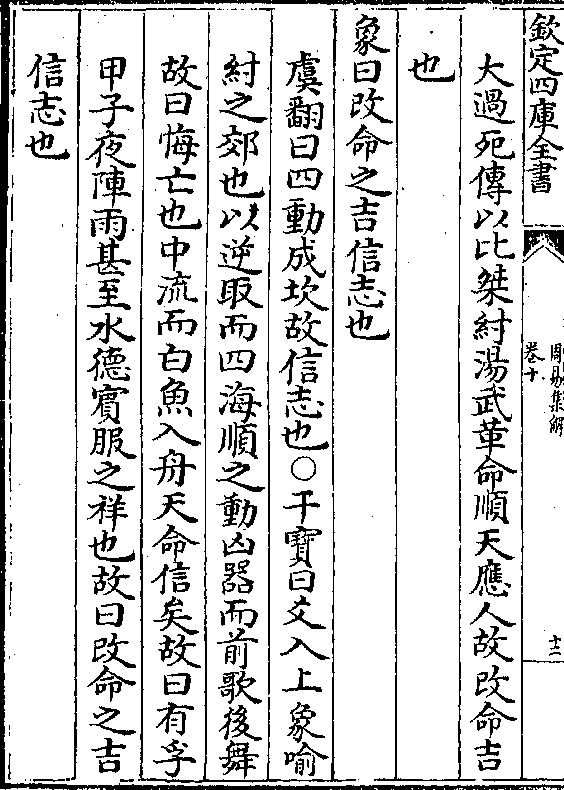 欽定四庫全書
周易集解
卷十
十二
大過死傳以比桀紂湯武革命順天應人故改命吉
也
象曰改命之吉信志也
虞翻曰四動成坎故信志也○干寶曰爻入上象喻
紂之郊也以逆取而四海順之動凶器而前歌後舞
故曰悔亡也中流而白魚入舟天命信矣故曰有孚
甲子夜陣雨甚至水德賓服之祥也故曰改命之吉
信志也